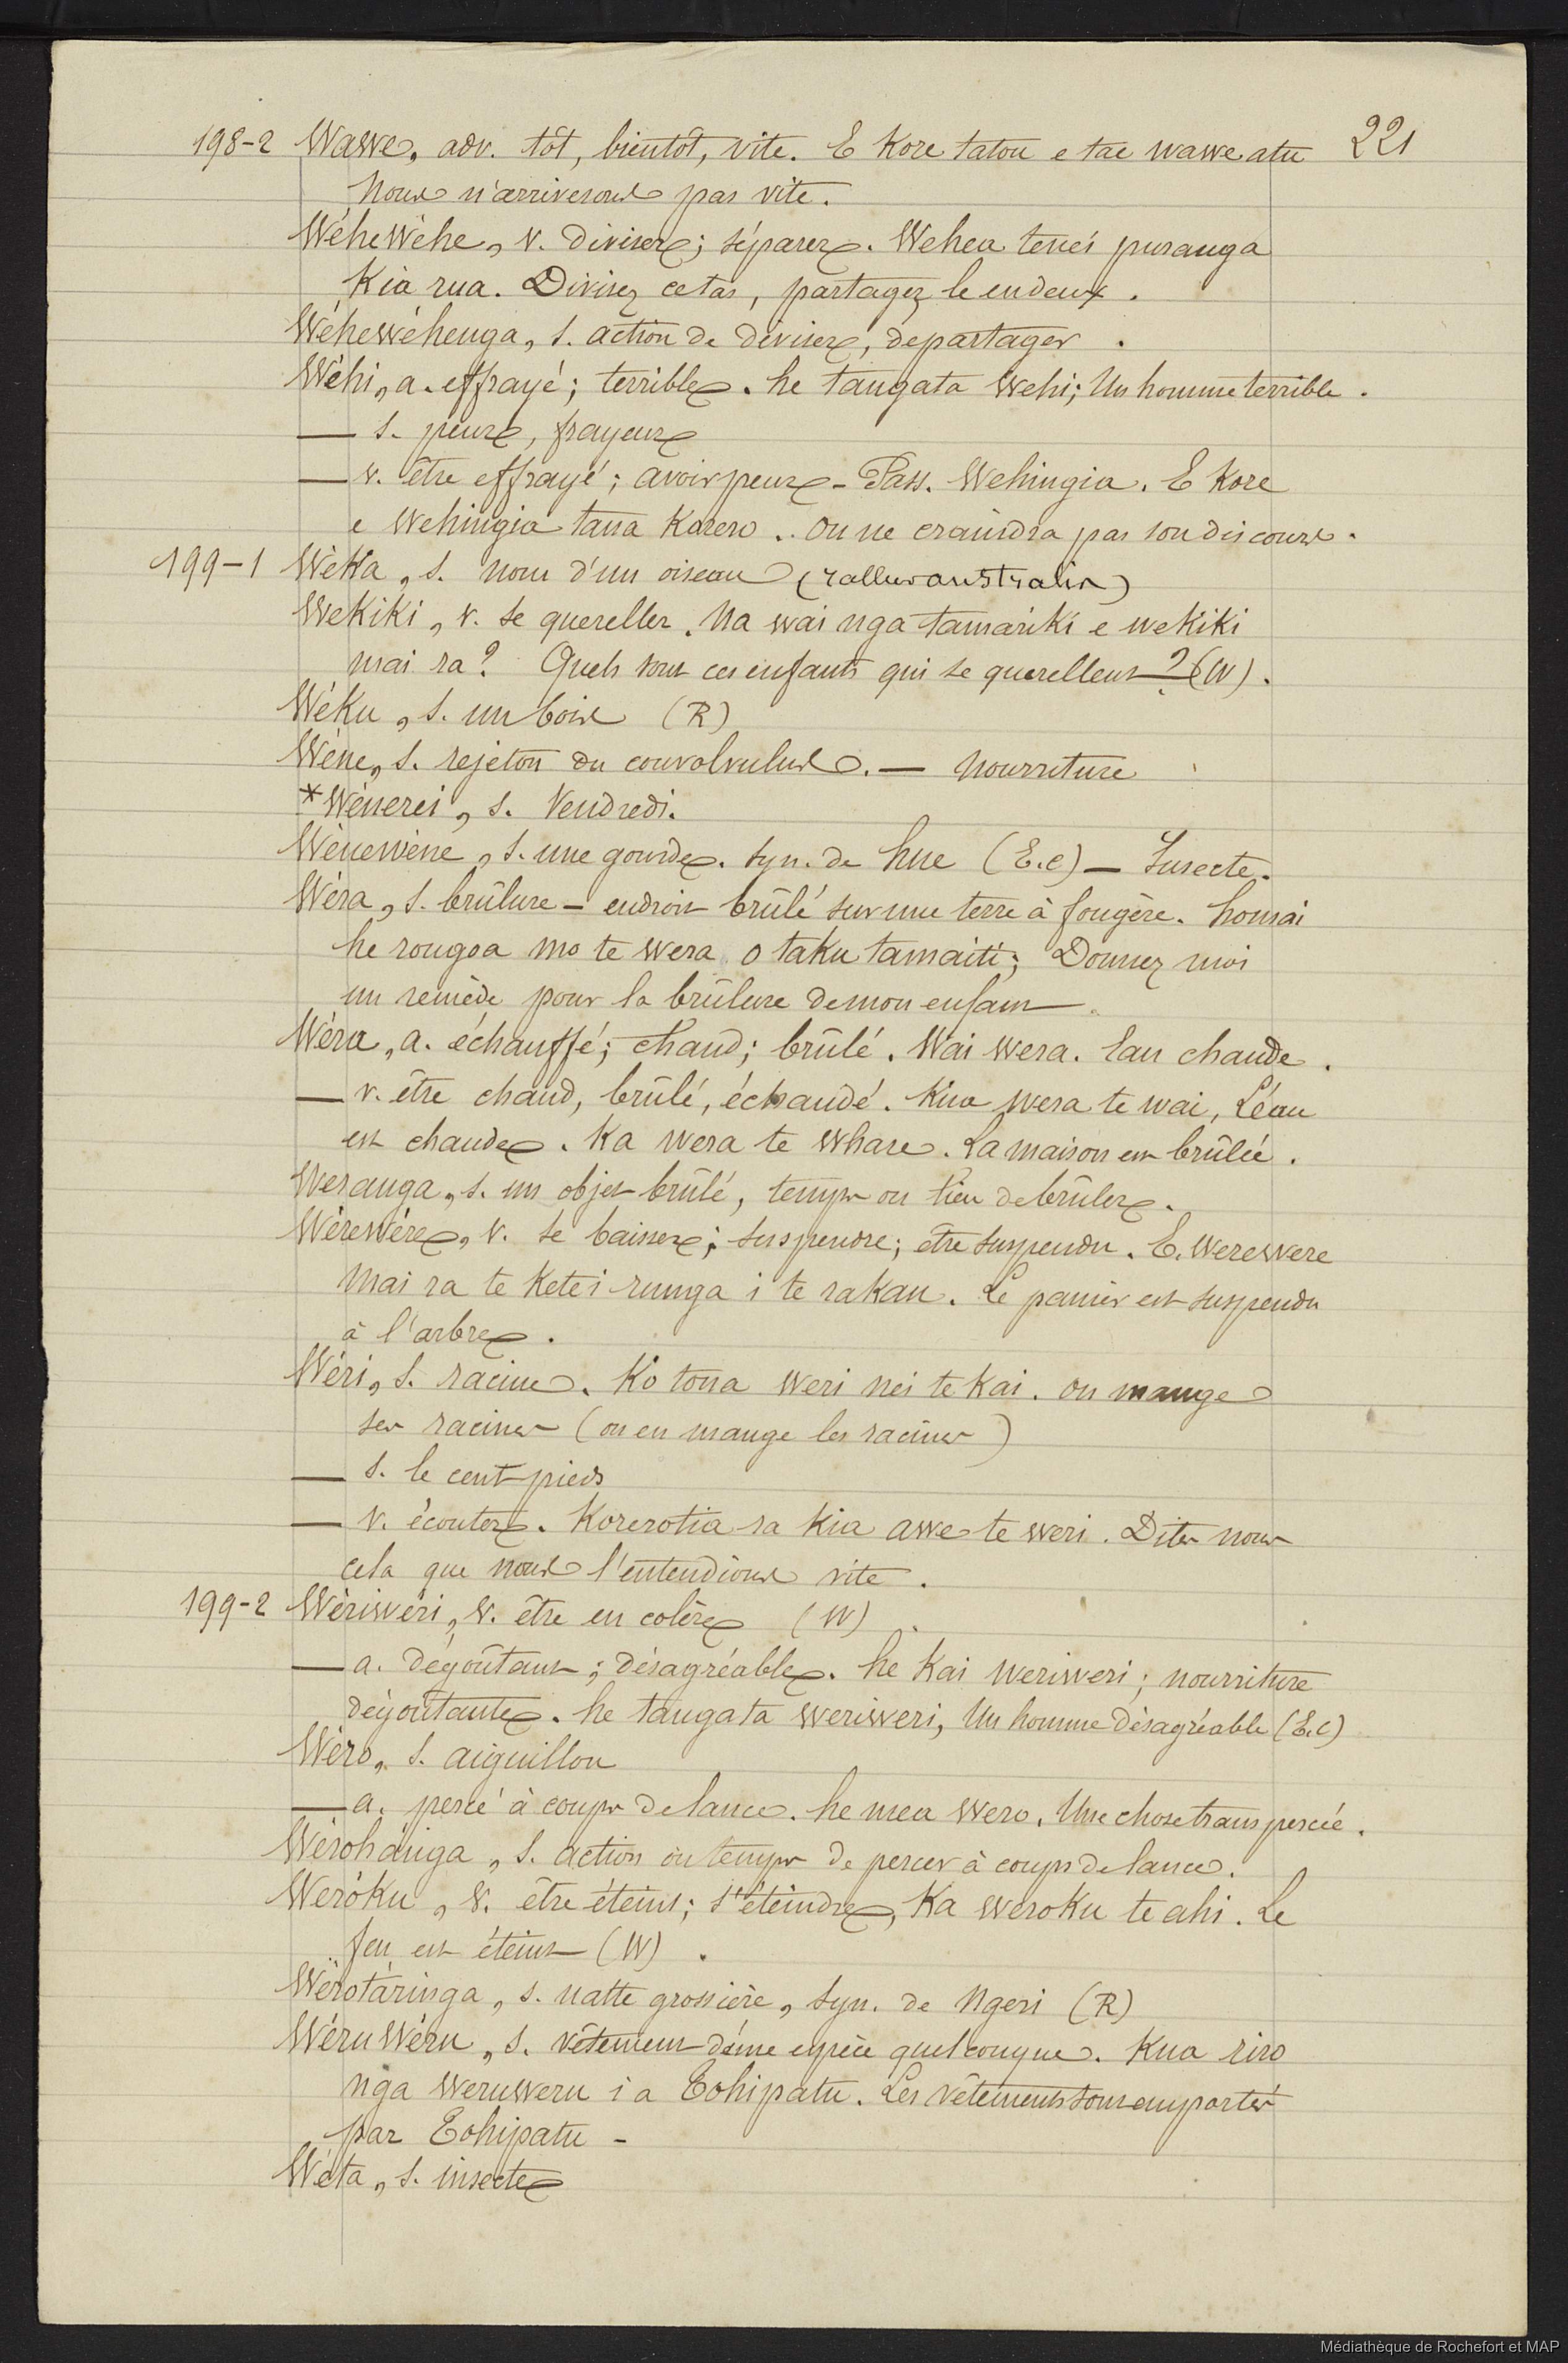 198-2 Wawe, adv. tôt, bientôt, vite. E Kore tatou e tae wawe atu 221
Nous n'arriverons pas vite.
Wéhewéhe, v. diviser; séparer. Wehea tenei puranga
Kia rua. Divisez ce tas, partagez le en deux.
Wéhewéhenga, s. action de diviser, de partager.
Wéhi, a. effrayé; terrible. he tangata Wehi; Un homme terrible.
— s. peur, frayeur
— v. être effrayé; avoir peur - Pass. Wehingia. E Kore
e Wehingia tana Korero.. On ne craindra pas son discours.
199-1 Wéka, s. nom d'un oiseau (rallus australis)
Wekiki, v. se quereller. Na wai nga tamariki e wekiki
mai ra? Quels sont ces enfants qui se querellent? (W).
Wéku, s. un bois (R)
Wéne, s. rejeton du convolvulus. — Nourriture
*Wénerei, s. Vendredi.
Wénewéne, s. une gourde. syn. de hue (E.C) — Insecte.
Wéra, s. brûlure - endroit brûlé sur une terre à fougère. homai
he rongoa mo te wera o taku tamaiti; Donnez moi
un remède pour la brûlure de mon enfant.
Wéra, a. échauffé; chaud; brûlé. Wai wera. Eau chaude.
— v. être chaud, brûlé, échaudé. Kua wera te wai, L'éau
est chaude. Ka wera te whare. La maison est brûlée.
Weranga, s. un objet brûlé, temps ou lieu de brûler.
Wérewére, v. se baisser; suspendre; être suspendu. E. werewere
mai ra te Kete i runga i te rakau. Le panier est suspendu
à l'arbre.
Wéri, s. racine. Ko tona weri nei te Kai. On mange
ses racines (on en mange les racines)
— s. le cent pieds
— v. écouter. Korerotia ra kia awe te weri. Dites nous
cela que nous l'entendions vite.
199-2 Wériwéri, v. être en colère (W).
— a. dégoûtant; désagréable. he Kai weriweri; nourriture
dégoûtante. he tangata weriweri, Un homme désagréable (E.C)
Wéro, s. aiguillon
— a. percé à coups de lance. he mea wero. Une chose transpercée.
Wérohánga, s. action ou temps de percer à coups de lance.
Weróku, v. être éteint; s'éteindre, Ka weroku te ahi. Le
feu est éteint (W).
Wérotáringa, s. natte grossière, syn. de Ngeri (R)
Wéruwéru, s. vêtement d'une espèce quelconque. Kua riro
nga weruweru i a Eohipatu. Les vêtements sont emportés
par Eohipatu -
Wéta, s. insecte
Médiathèque de Rochefort et MAP